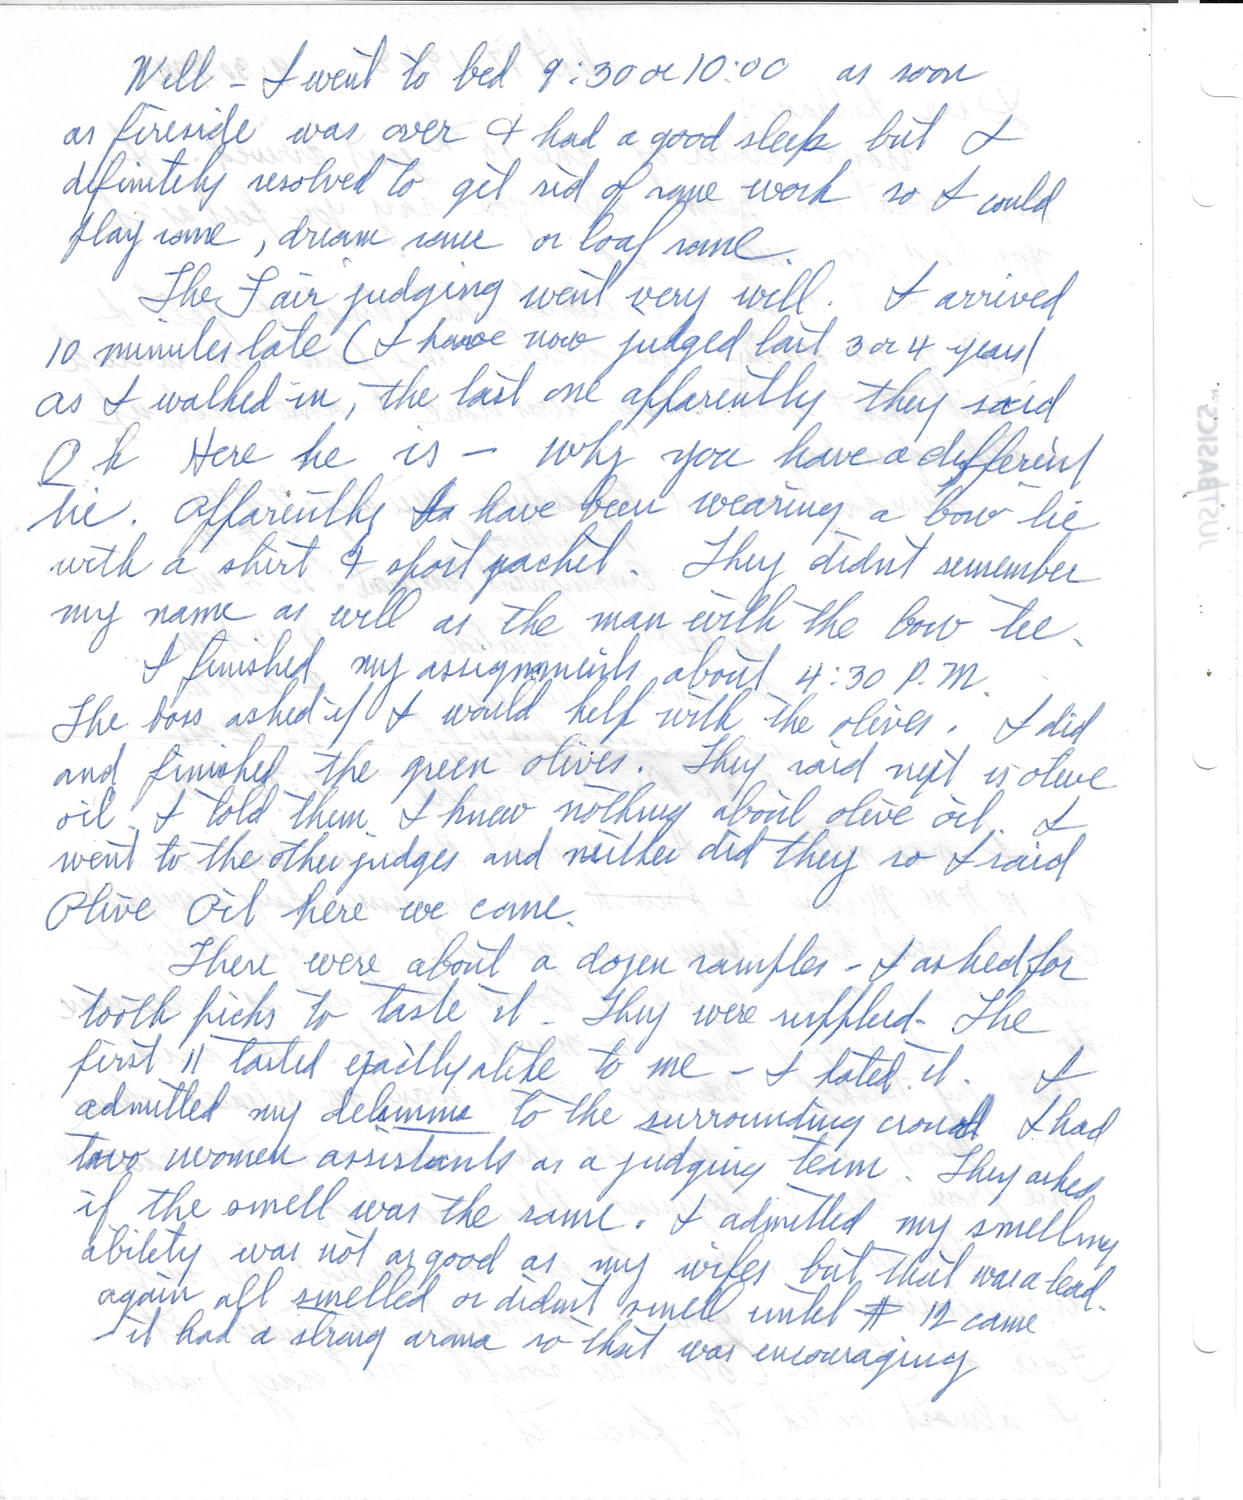 Well - I went to bed 9:30 or 10:00 as soon
as fireside was over & had a good sleep but I
definitely resolved to get rid of some work so I could
play some, dream some or loaf some.
The Fair judging went very well. I arrived
10 minutes late (I have now judged last 3 or 4 years)
as I walked in, the last one apparently they said
Oh Here he is - why you have a different
tie. Apparently I have been wearing a bow tie
with a shirt & sport jacket. They didn't remember
my name as well as the man with the bow tie.
I finished my assignments about 4:30 P.M.
The boss asked if I would help with the olives. I did
and finished the green olives. They said next is olive
oil. I told them I knew nothing about olive oil. I
went to the other judges and neither did they so I said
Olive Oil here we come.
There were about a dozen samples - I asked for
tooth picks to taste it - They were supplied - The
first 11 tasted exactly alike to me - I hated it. I
admitted my delamma to the surrounding crowd I had
two women assistants as a judging team. They asked
if the smell was the same. I admitted my smelling
ability was not as good as my wifes but that was a lead.
again all smelled or didnt smell until # 12 came
- it had a strong aroma so that was encouraging
JUSTBASICS™